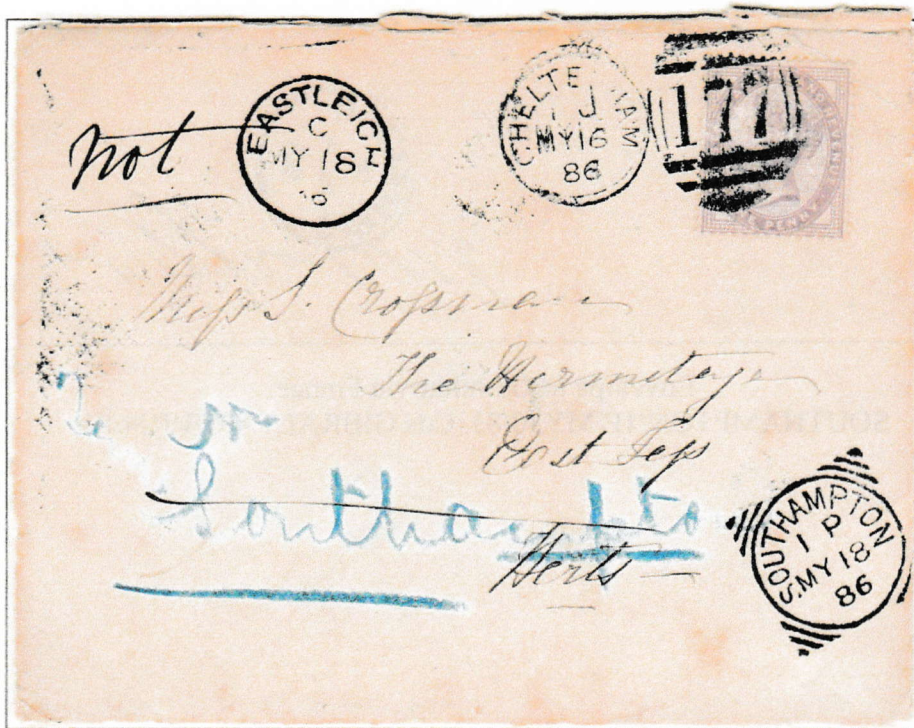 Not
EASTLEIGH
C
MY 18
6
CHELTENHAM
J
MY 16
86
177
AND REVENUE
PENNY
Miss S. Crossman
The Hermitage
East
Southampto
Herts
SOUTHAMPTON
1 P
MY 18
86